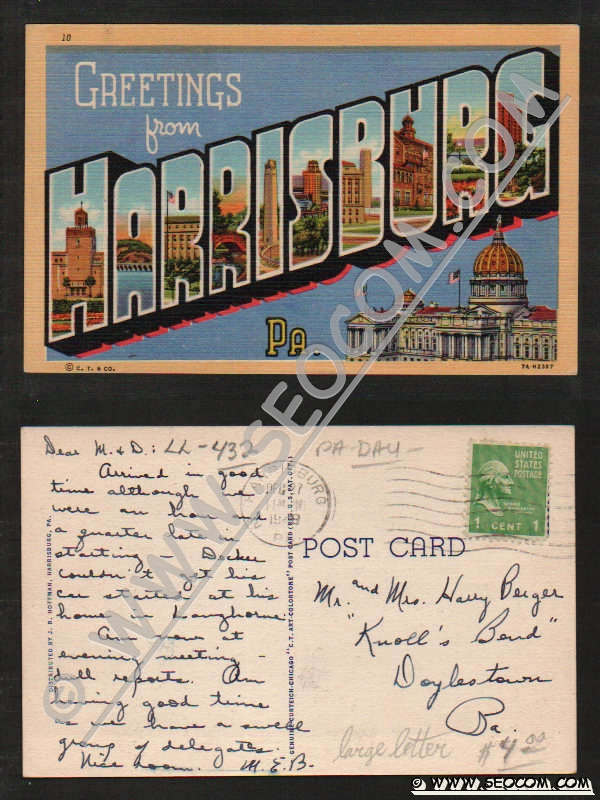 10
GREETINGS
from
HARRISBURG
PA.
© C. T. & CO.
7A-H2387
© WWW.SEOCOM.COM
Dear M. & D.: LL-432
Arrived in good
time although we
were an hour and
a quarter late in
starting - Decker
couldn't get his
car started at his
home in Langhorne.
Am now at
evening meeting -
dull reports. Am
having good time
as we have a swell
group of delegates.
Nice room. M.E.B.
DISTRIBUTED BY J. B. HOFFMAN, HARRISBURG, PA.
GENUINE CURTEICH-CHICAGO "C.T. ART-COLORTONE" POST CARD (REG. U.S. PAT. OFF.)
PA-DAU-
HARRISBURG
27
UNITED
STATES
POSTAGE
1 CENT 1
POST CARD
Mr. and Mrs. Harry Berger
"Knoll's Bend"
Doylestown
Pa.
large letter $4.00
© WWW.SEOCOM.COM